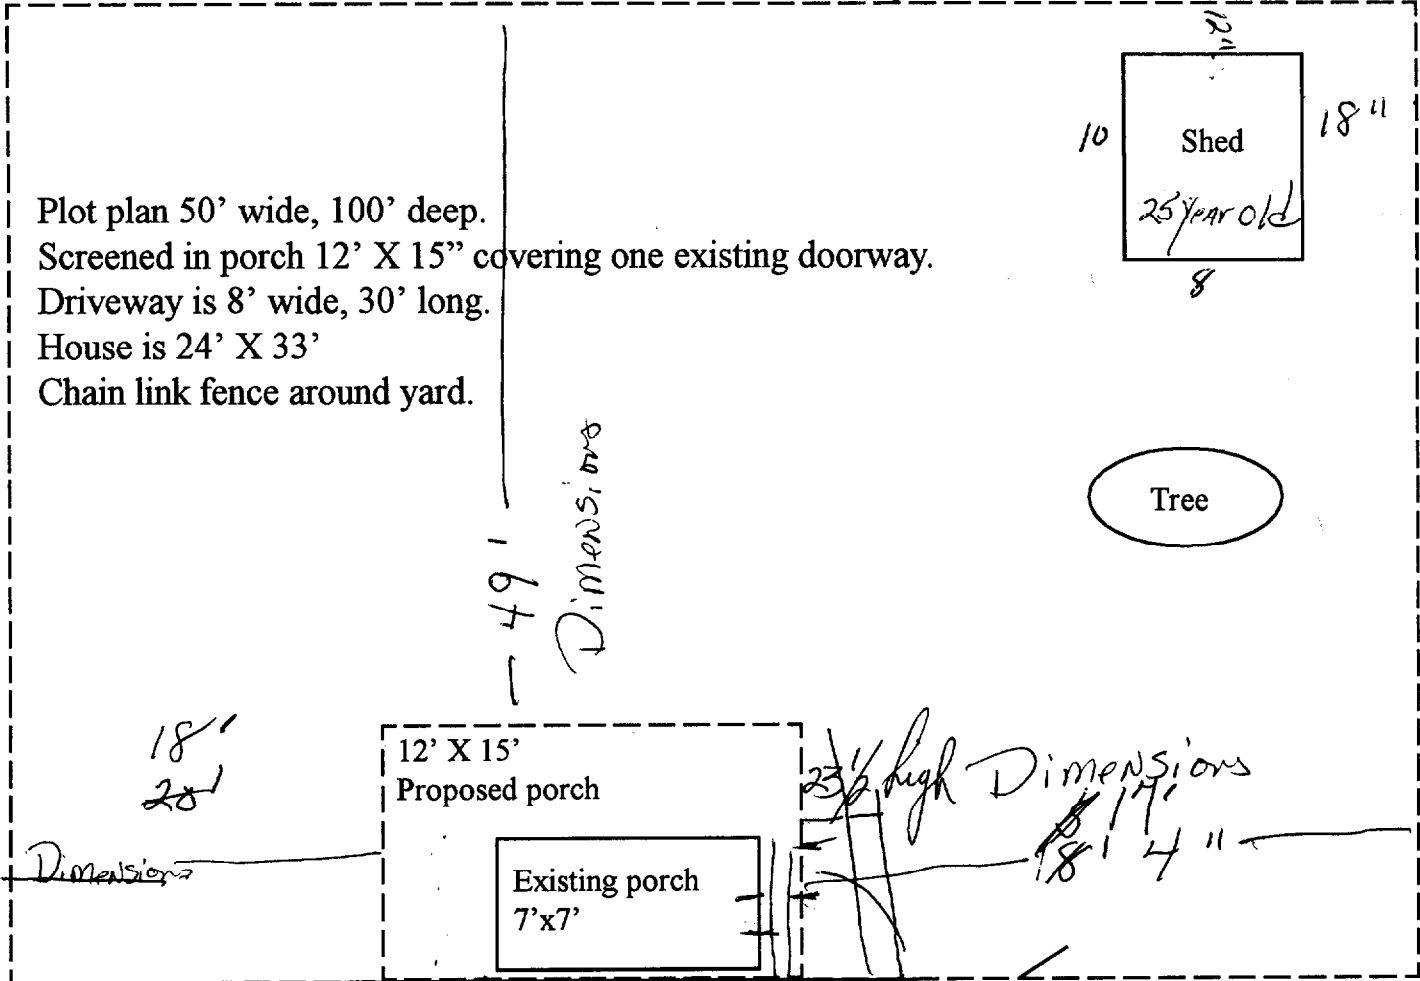 12"
10
Shed
18"
25 year old
8
Plot plan 50’ wide, 100’ deep.
Screened in porch 12’ X 15” covering one existing doorway.
Driveway is 8’ wide, 30’ long.
House is 24’ X 33’
Chain link fence around yard.
Tree
49'
Dimensions
18'
20'
Dimensions
12’ X 15’
Proposed porch
Existing porch
7’x7’
23 1/2 high Dimensions
17'
18' 4"